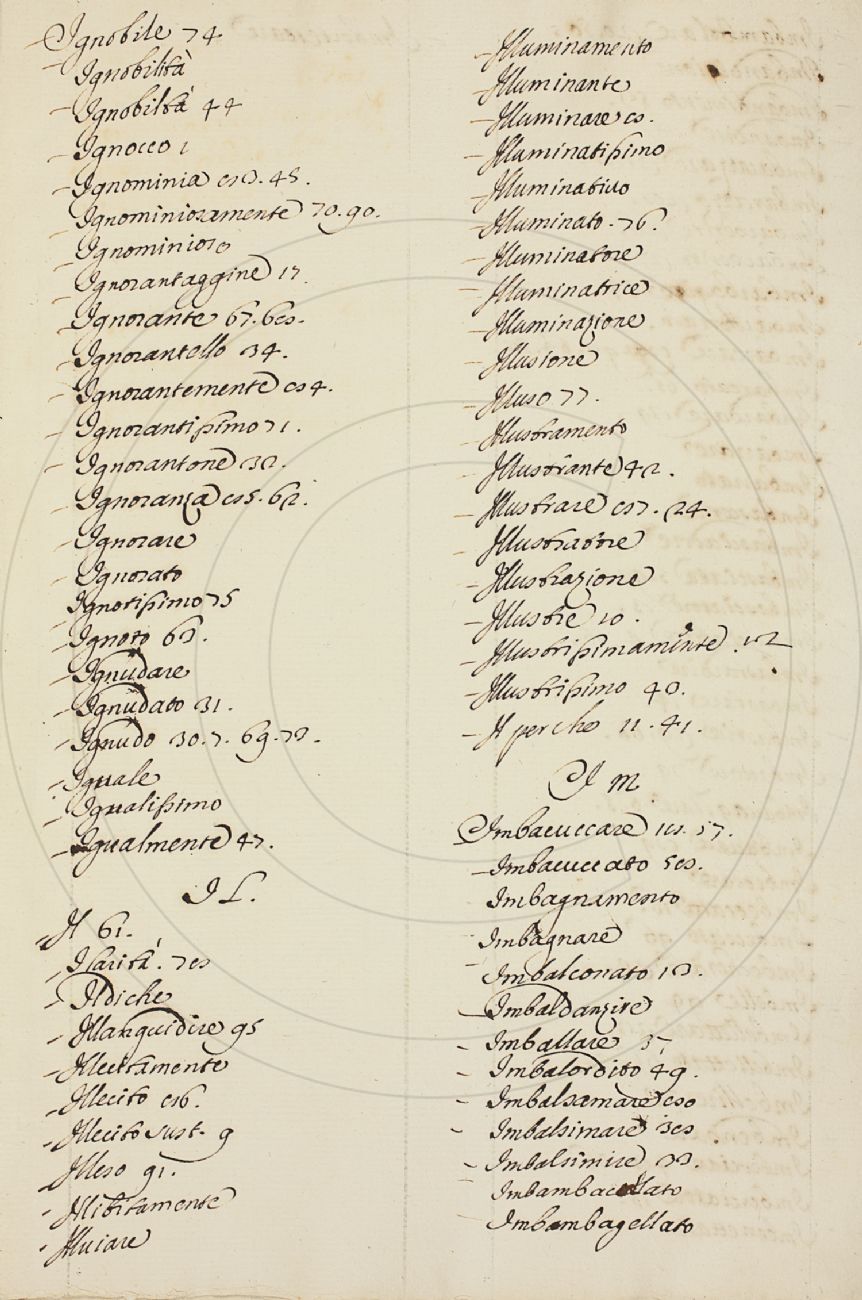 Ignobile 74
Ignobilità
Ignobiltà 44
Ignocco 1
Ignominia 83. 45.
Ignominiosamente 70. 90.
Ignominioso
Ignorantaggine 17
Ignorante 67. 68.
Ignorantello 34.
Ignorantemente 84.
Ignorantissimo 71.
Ignorantone 32.
Ignoranza 85. 62.
Ignorare
Ignorato
Ignotissimo 75
Ignoto 63.
Ignudare
Ignudato 31.
Ignudo 30. 7. 69. 73.
Iguale
Igualissimo
Igualmente 47.
I L.
Il 61.
Ilarità. 78
Ildiche
Illanguidire 95
Illecitamente
Illecito 86.
Illecito sust. 9
Illeso 91.
Illibitamente
Illuiare
Illuminamento
Illuminante
Illuminare 8.
Illuminatissimo
Illuminativo
Illuminato. 76.
Illuminatore
Illuminatrice
Illuminazione
Illusione
Illuso 77.
Illustramento
Illustrante 42.
Illustrare 87. 24.
Illustratore
Illustrazione
Illustre 10.
Illustrissimamente. 12
Illustrissimo 40.
Il perche 11. 41.
I m
Imbacuccare 18. 57.
Imbacuccato 58.
Imbagnamento
Imbagnare
Imbalconato 13.
Imbaldanzire
Imballare 37
Imbalordito 49.
Imbalsamare 80
Imbalsimare 38
Imbalsimire 33.
Imbambacellato
Imbambagellato